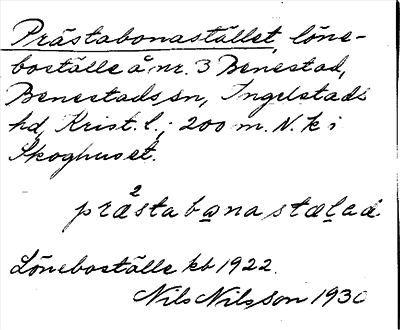 Prästabonastället, löne-
boställe å nr. 3 Benestad,
Benestads sn, Ingelstads
hd, Krist. l.; 200 m. N. k i
Skoghuset.
prä²stabo̲nastæl̲aḋ
Löneboställe kb 1922.
Nils Nilsson 1930